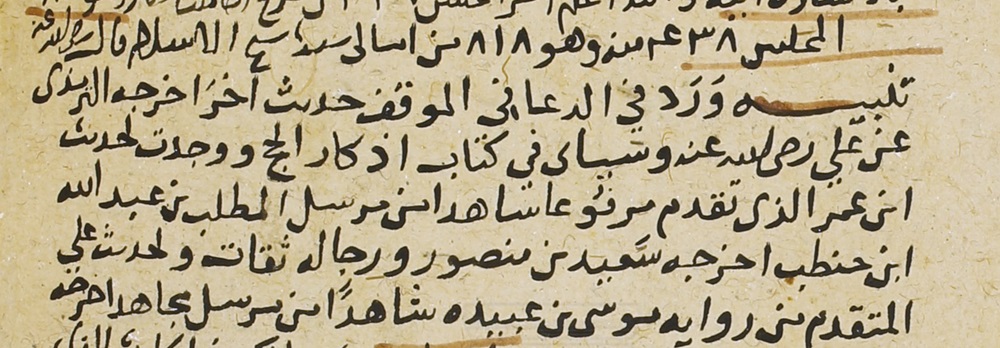 المجلس ٣٨ عـ منه وهو ٨١٨ من امالى سيدنا شيخ الاسلام قال رضى الله عنه
تنبيه وَرَدَ في الدعا في الموقف حديث آخر اخرجه الترمذى
عن علي رضى الله عنه وسياتى في كتاب اذكار الحج ووجدت لحديث
ابن عمر الذى تقدم مرفوعا شاهدا من مرسل المطلب بن عبد الله
ابن حنطب اخرجه سَعيد بن منصور ورجاله ثقات ولحديث علي
المتقدم من رواية موسى بن عبيده شاهدًا من مرسل مجاهد اخرجه